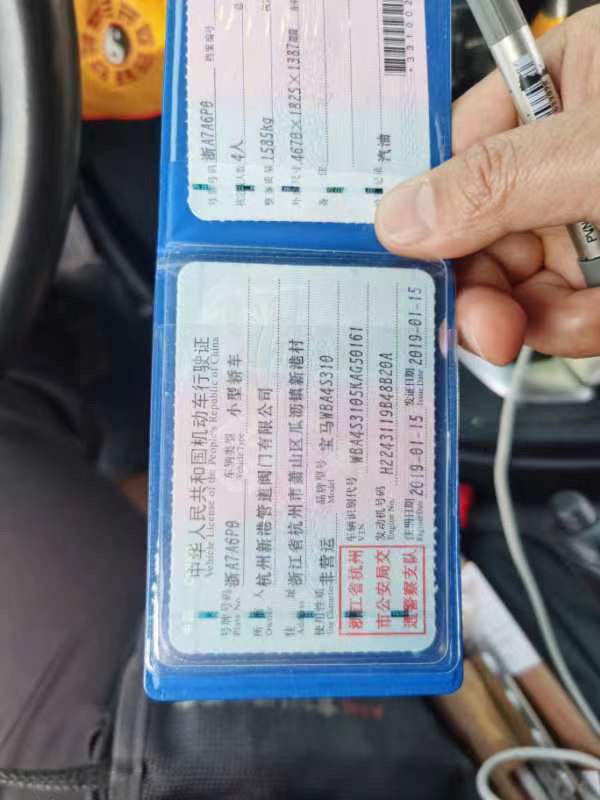 中华人民共和国机动车行驶证
Vehicle License of the People's Republic of China
号牌号码 浙A7A6P0 车辆类型 小型轿车
Plate No. Vehicle Type
所 人 杭州新港管道阀门有限公司
Owner
住 址 浙江省杭州市萧山区瓜沥镇新港村
Address
使用性质 非营运 品牌型号 宝马WBA4S310
Use Character Model
浙江省杭州
市公安局交
通警察支队
车辆识别代号 WBA4S3105KAG50161
VIN
发动机号码 H2243119B48B20A
Engine No.
注册日期 2019-01-15 发证日期 2019-01-15
Register Date Issue Date
号牌号码 浙A7A6P0 档案编号
人数 4人
整备质量 1585kg
外 尺寸 4670×1825×1387
备 注
记录 汽油